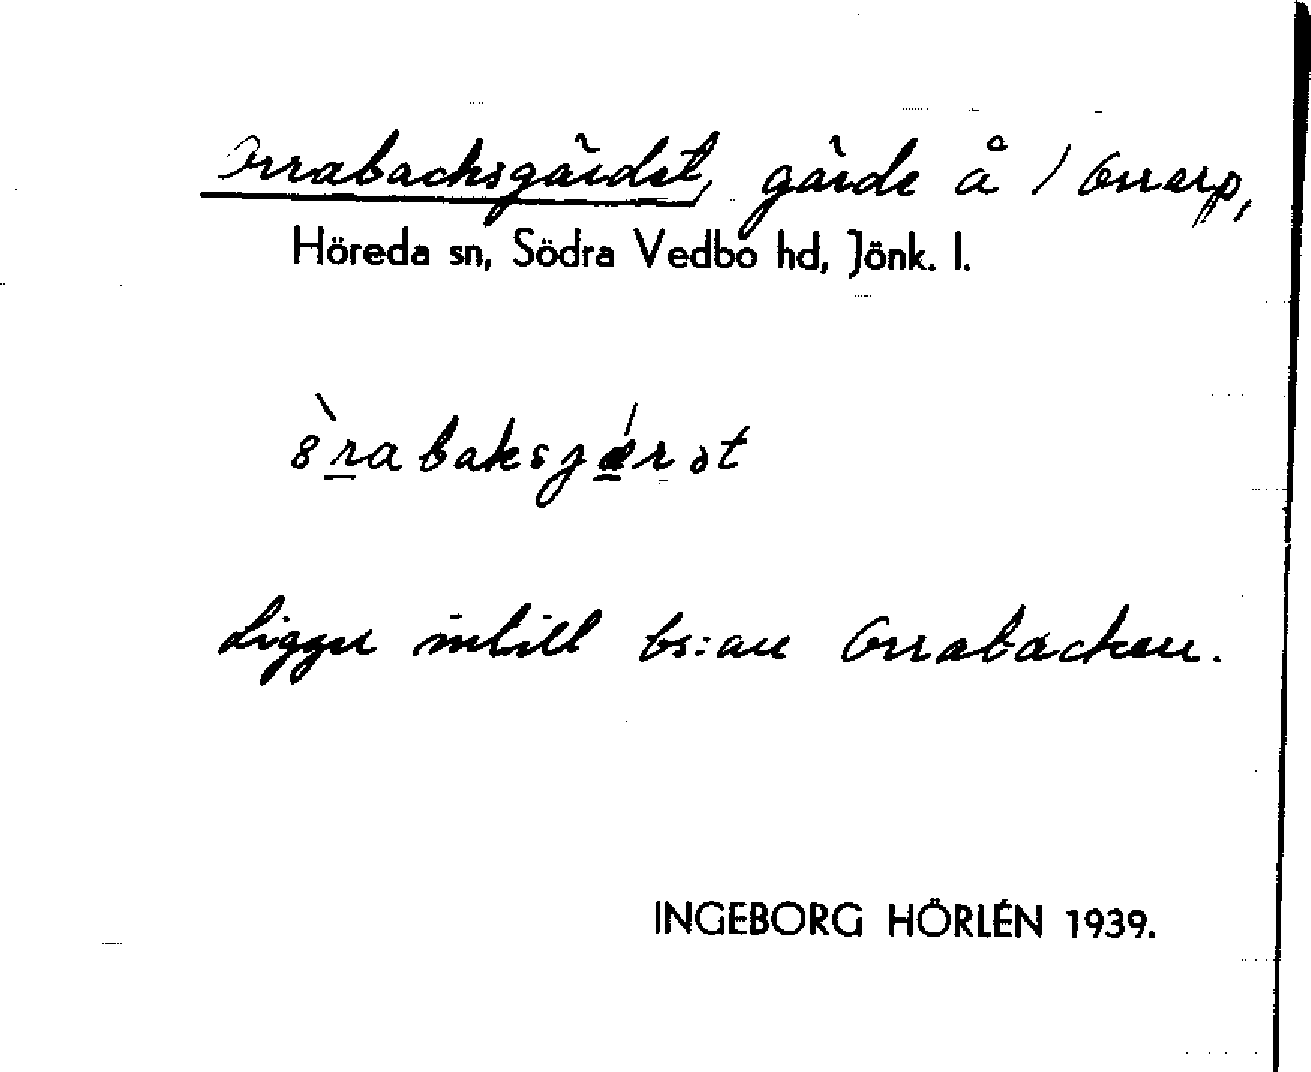 Orrabacksgärdet, gärde å 1 Orrarp,
Höreda sn, Södra Vedbo hd, Jönk. l.
Ligger intill bs:an Orrabacken.
INGEBORG HÖRLÉN 1939.